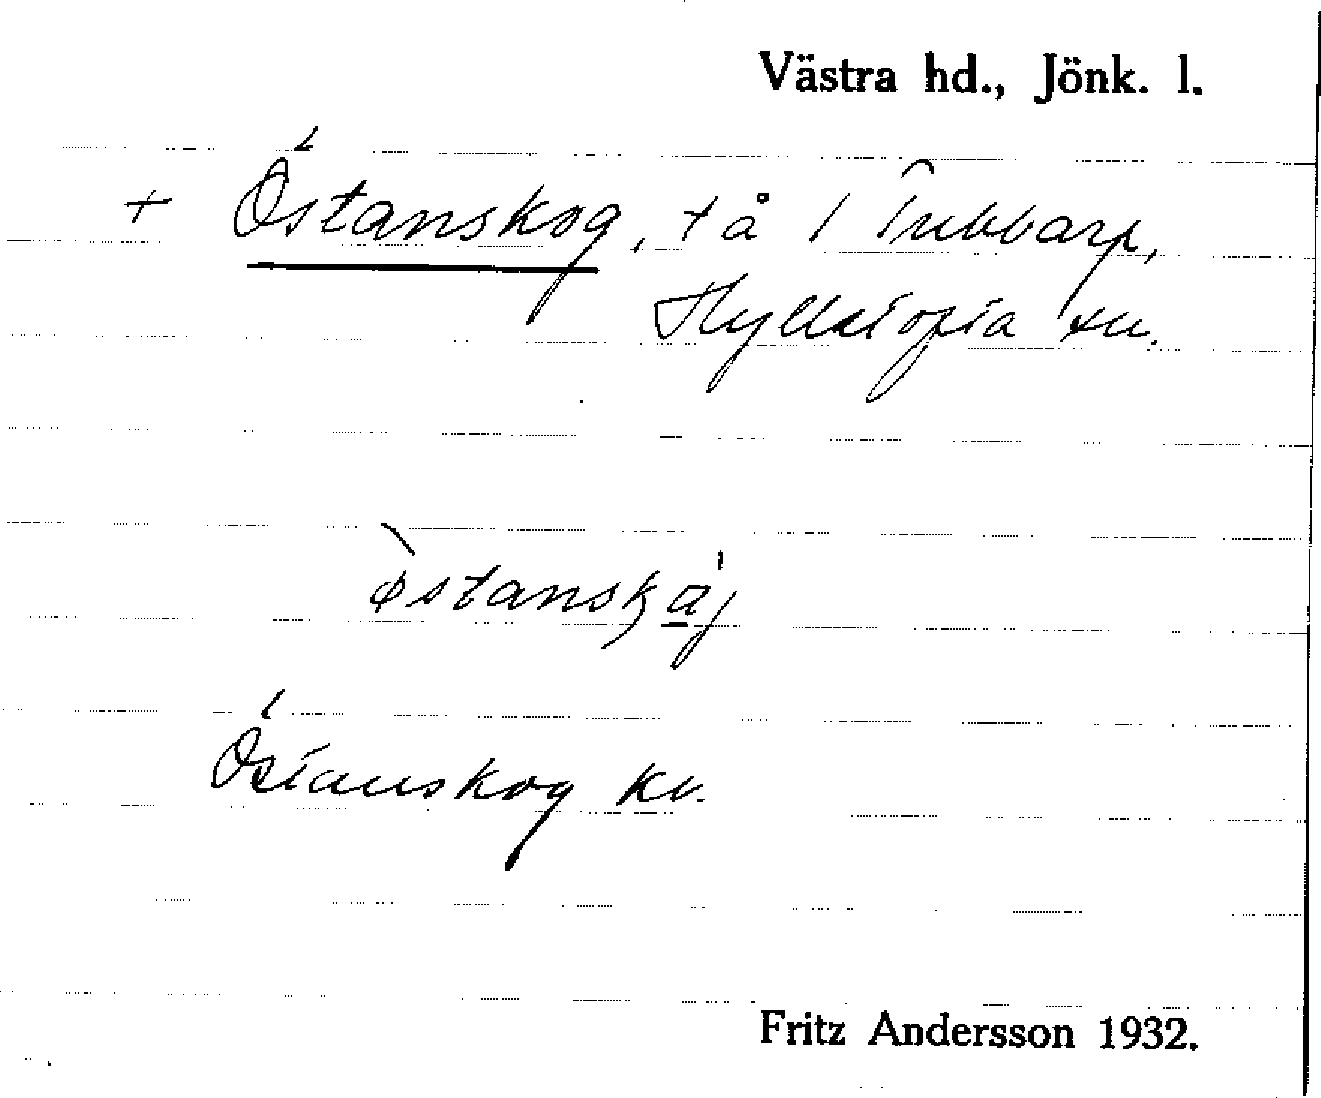 Västra hd., Jönk. l.
+ Östanskog, tå / Trubbarp,
Hylletofta sn.
östanskaj
Östanskog kv.
Fritz Andersson 1932.